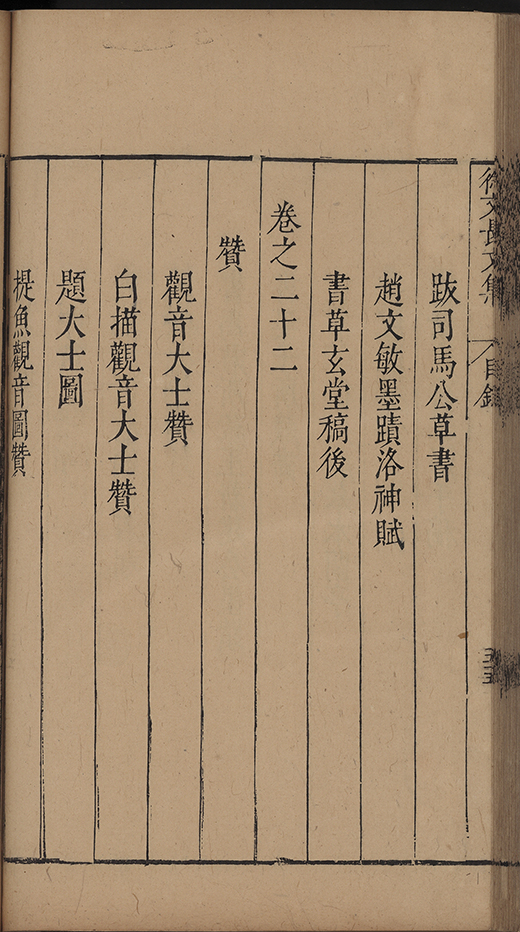 徐文長文集 目錄
跋司馬公草書
趙文敏墨蹟洛神賦
書草玄堂稿後
卷之二十二
贊
觀音大士贊
白描觀音大士贊
題大士圖
提魚觀音圖贊